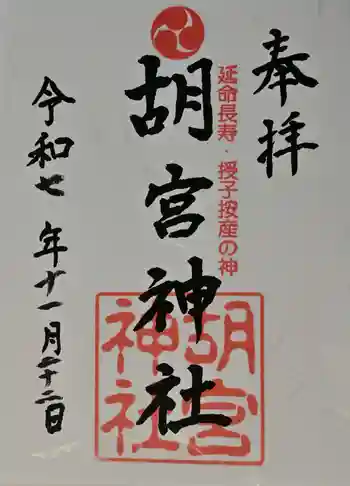 奉拝
延命長寿・授子按産の神
胡宮神社
胡宮神社
令和七年十一月二十二日